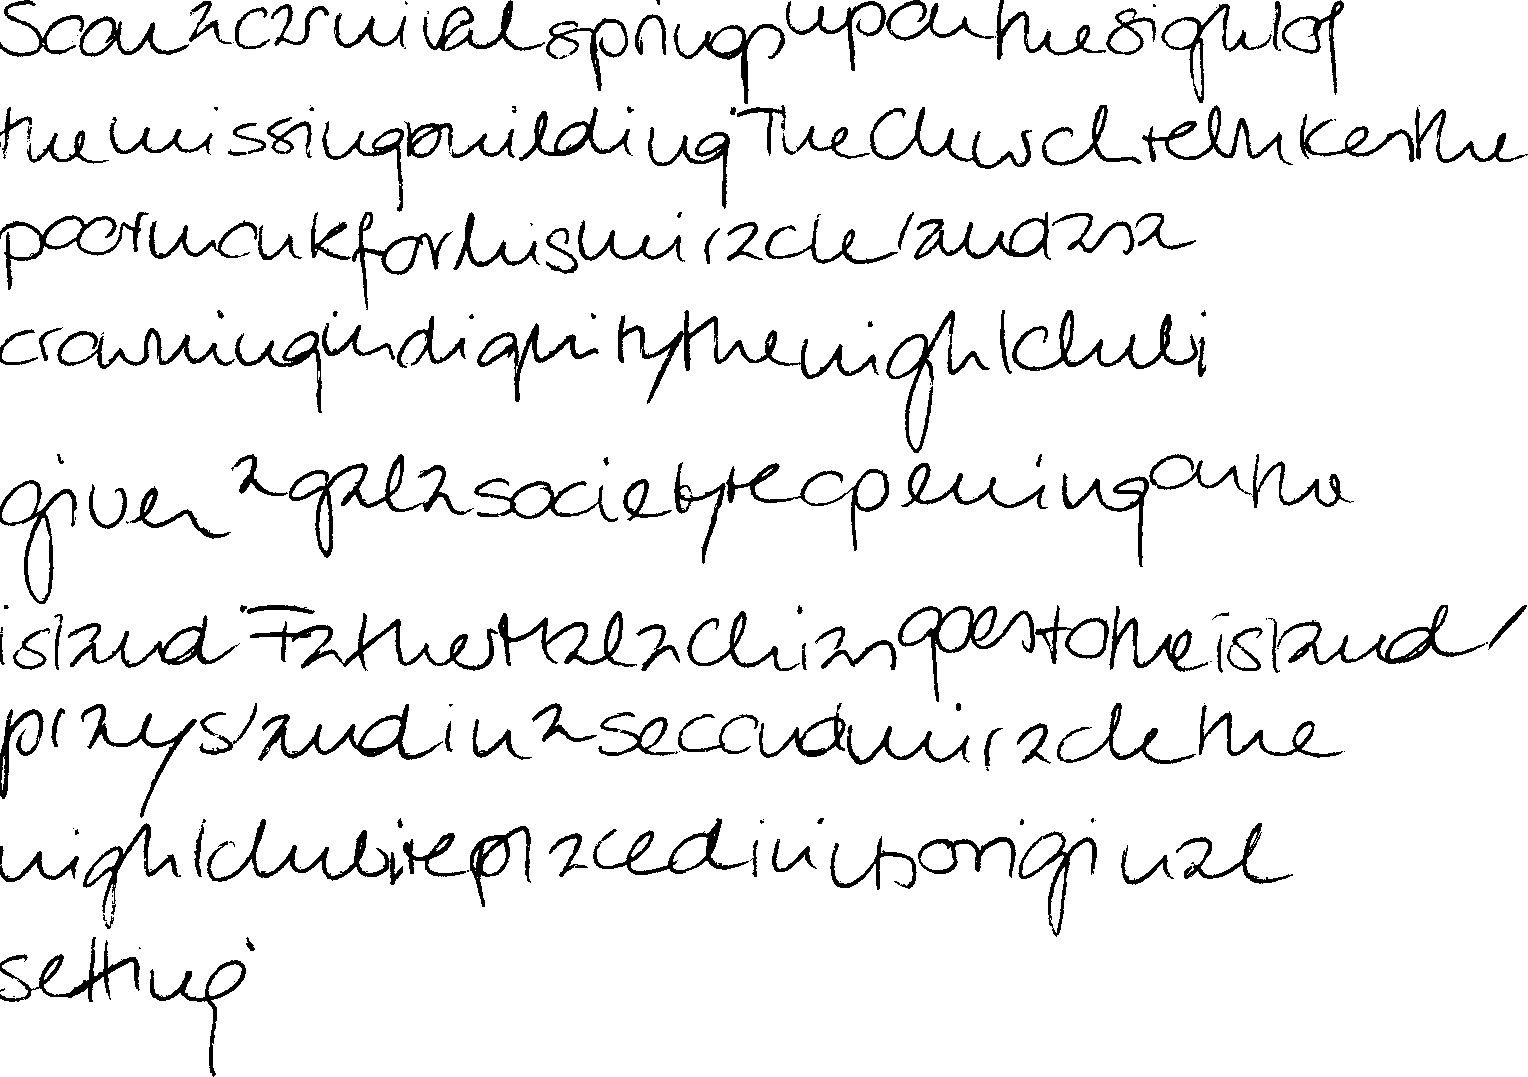 Soon a carnival springs up on the sight of
the missing building. The Church rebukes the
poor monk for his miracle, and as a
crowning indignity the nightclub i
given a gala society reopening on the
island. Father Malachias goes to the island,
prays, and in a second miracle the
nightclub i replaced in its original
setting.